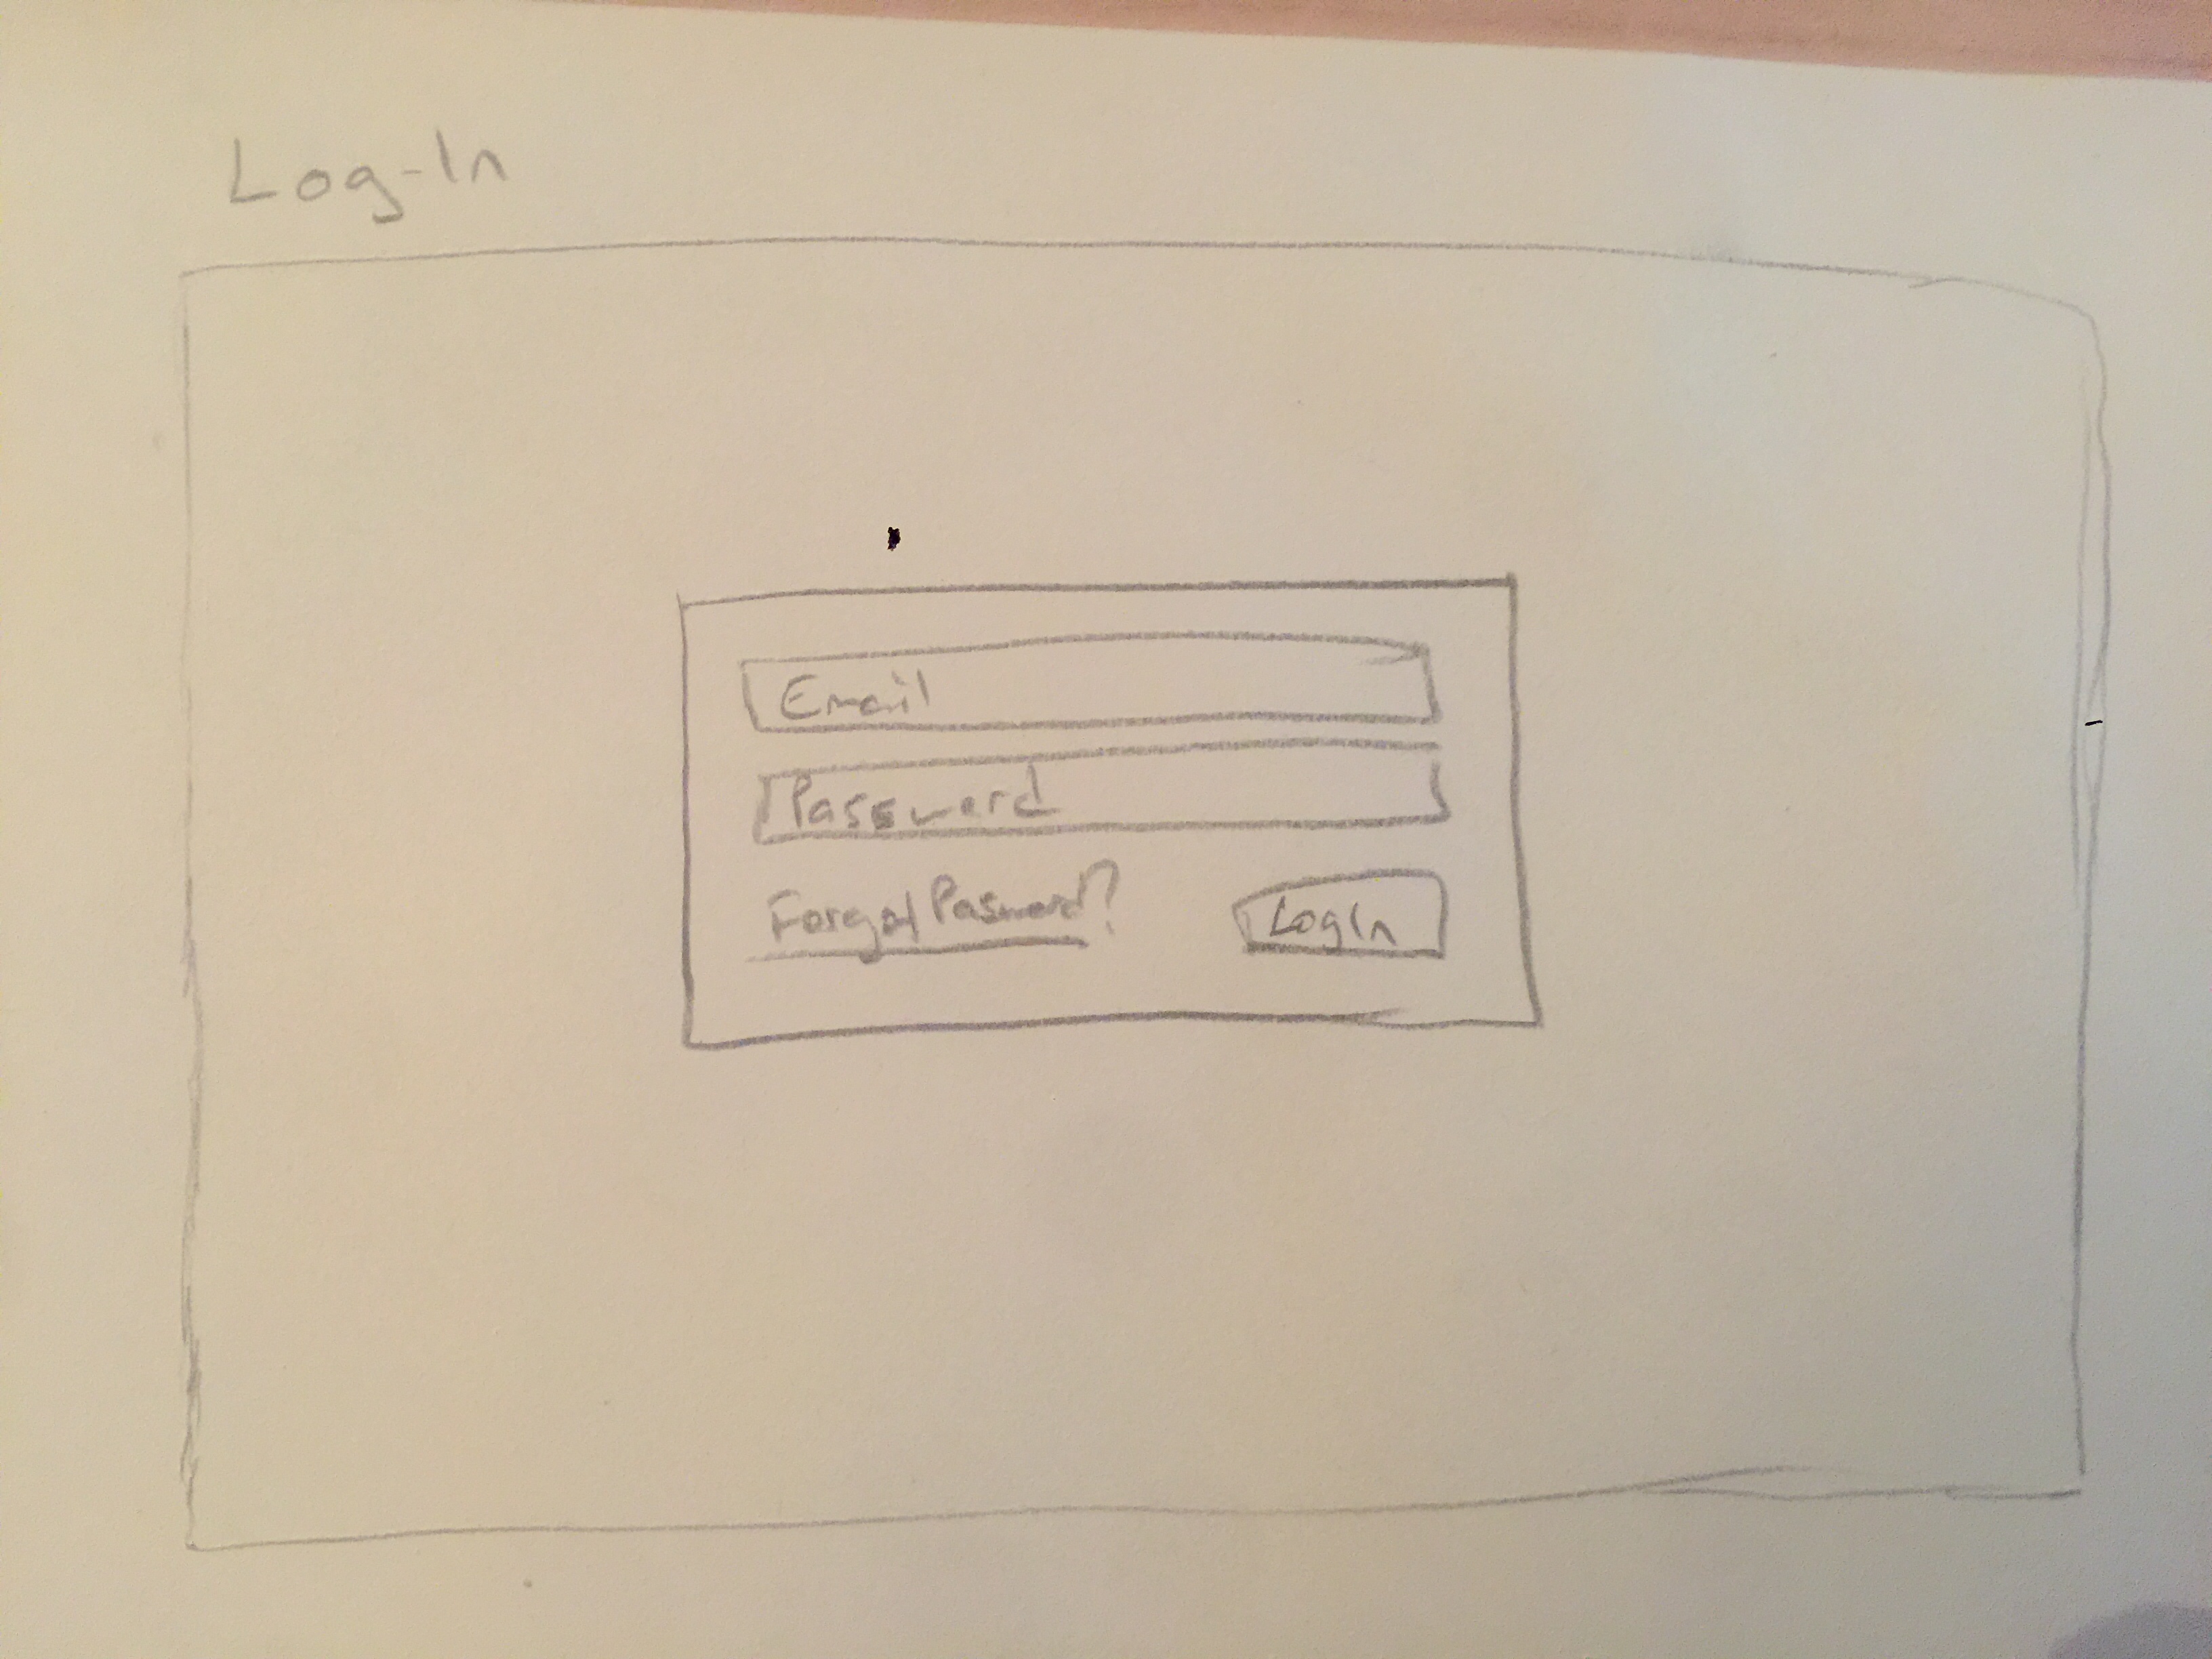 Log-In
Email
Password
Forgot Password?
LogIn